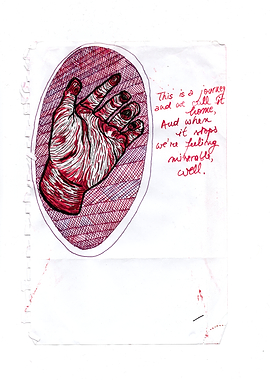 This is a journey
and we still sit
home,
And when
it stops
we're feeling
miserable,
well.